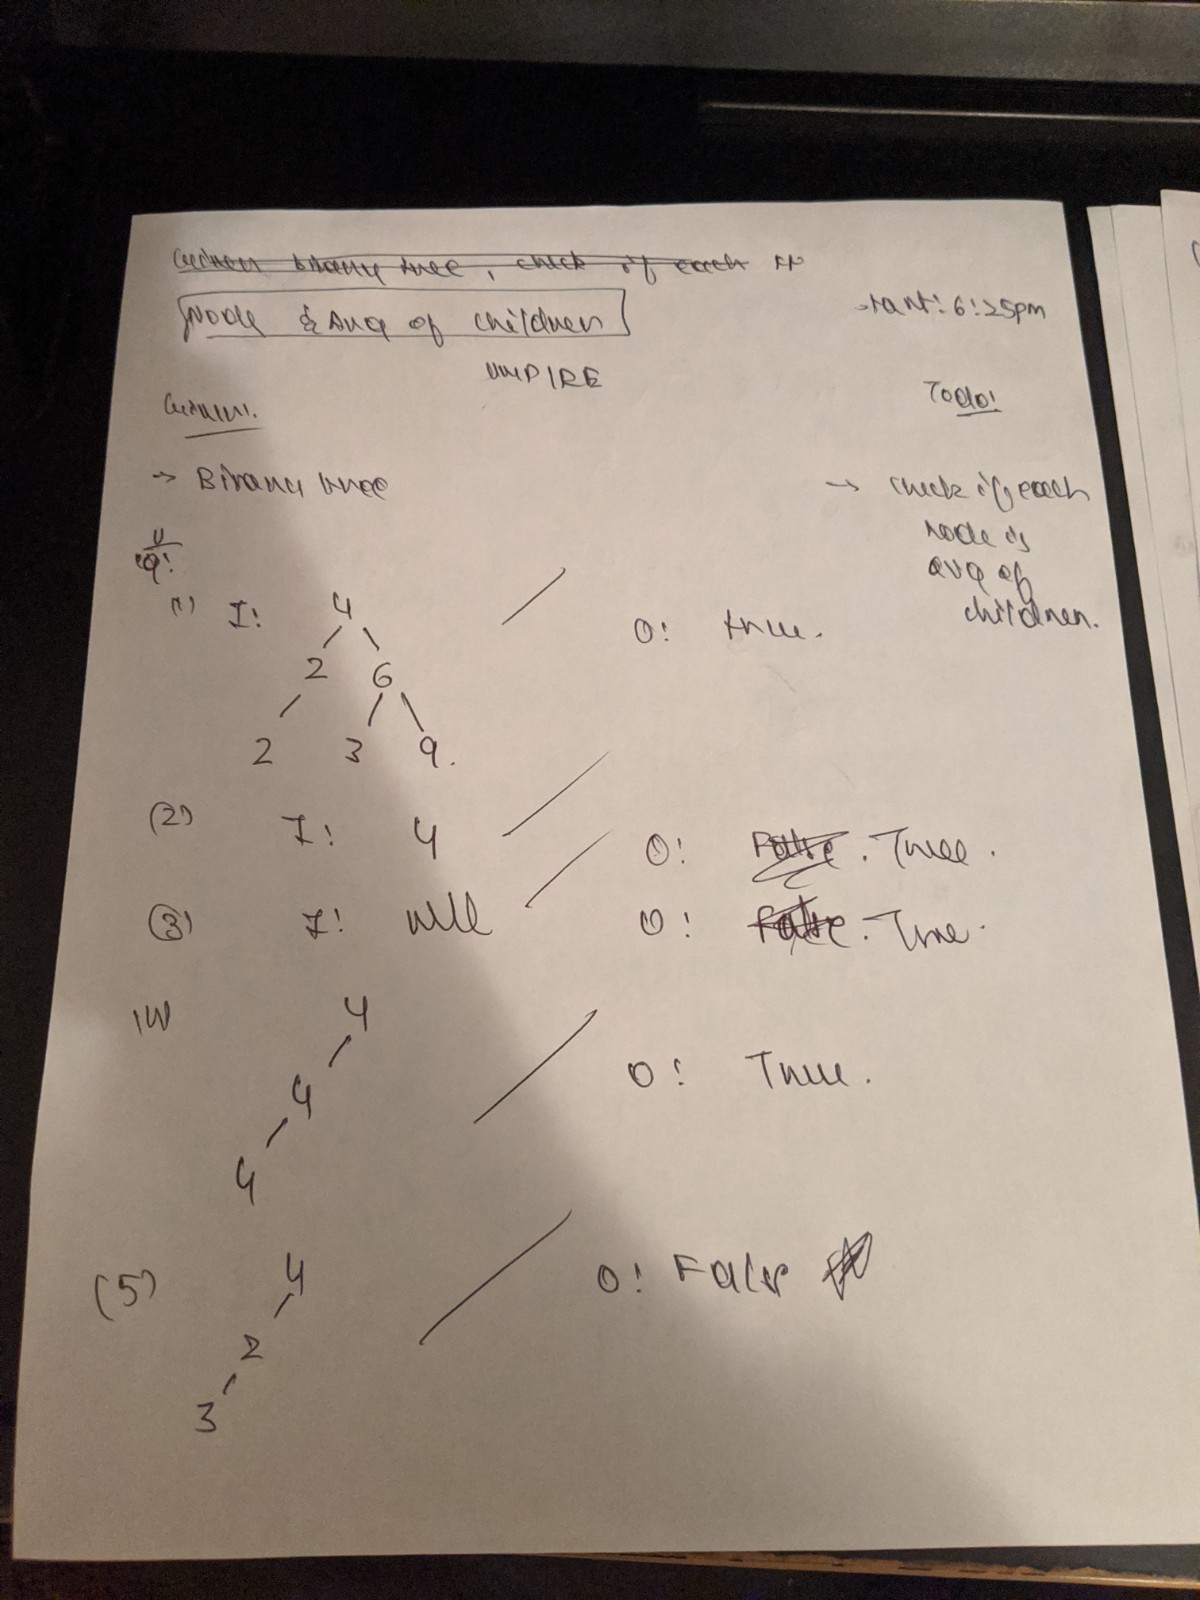 Given binary tree, check if each
Node & Avg of children
Start: 6:25pm
UMPIRE
Given:
Todo:
→ Binary tree
→ check if each
node is
avg of
children.
U
Q:
(1) I: 4
O: true.
2 6
2 3 9.
(2) I: 4
O: False. True.
(3) I: null
O: False. True.
(4) 4
O: True.
4
4
(5) 4
O: False
2
3